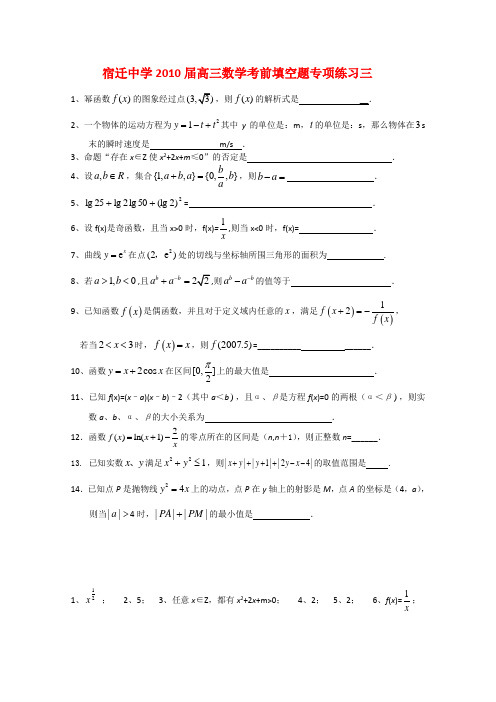 宿迁中学2010届高三数学考前填空题专项练习三
1、幂函数f(x)的图象经过点(3,√3)，则f(x)的解析式是 __．
2、一个物体的运动方程为y=1−t+t²其中y的单位是：m，t的单位是：s，那么物体在3s
末的瞬时速度是 m/s ．
3、命题“存在x∈Z使x²+2x+m≤0”的否定是 ．
4、设a,b∈R，集合{1,a+b,a}={0,b/a,b}，则b−a= ．
5、lg25+lg2lg50+(lg2)²= ．
6、设f(x)是奇函数，且当x>0时，f(x)=1/x,则当x<0时，f(x)= ．
7、曲线y=eˣ在点(2，e²)处的切线与坐标轴所围三角形的面积为 ．
8、若a>1,b<0,且aᵇ+a⁻ᵇ=2√2,则aᵇ−a⁻ᵇ的值等于 ．
9、已知函数f(x)是偶函数，并且对于定义域内任意的x，满足f(x+2)=−1/f(x)，
若当2<x<3时，f(x)=x，则f(2007.5)=__________ ______．
10、函数y=x+2cosx在区间[0,π/2]上的最大值是 ．
11、已知f(x)=(x﹣a)(x﹣b)﹣2（其中a＜b），且α、β是方程f(x)=0的两根（α＜β），则实
数a、b、α、β的大小关系为 ．
12．函数f(x)=ln(x+1)−2/x的零点所在的区间是（n,n＋1），则正整数n=______．
13. 已知实数x、y满足x²+y²≤1，则|x+y|+|y+1|+|2y−x−4|的取值范围是 ．
14．已知点P是抛物线y²=4x上的动点，点P在y轴上的射影是M，点A的坐标是（4，a），
则当|a|>4时，|PA|+|PM|的最小值是 ．
1、x^(1/2) ； 2、5； 3、任意x∈Z，都有x²+2x+m>0； 4、2； 5、2； 6、f(x)=1/x；